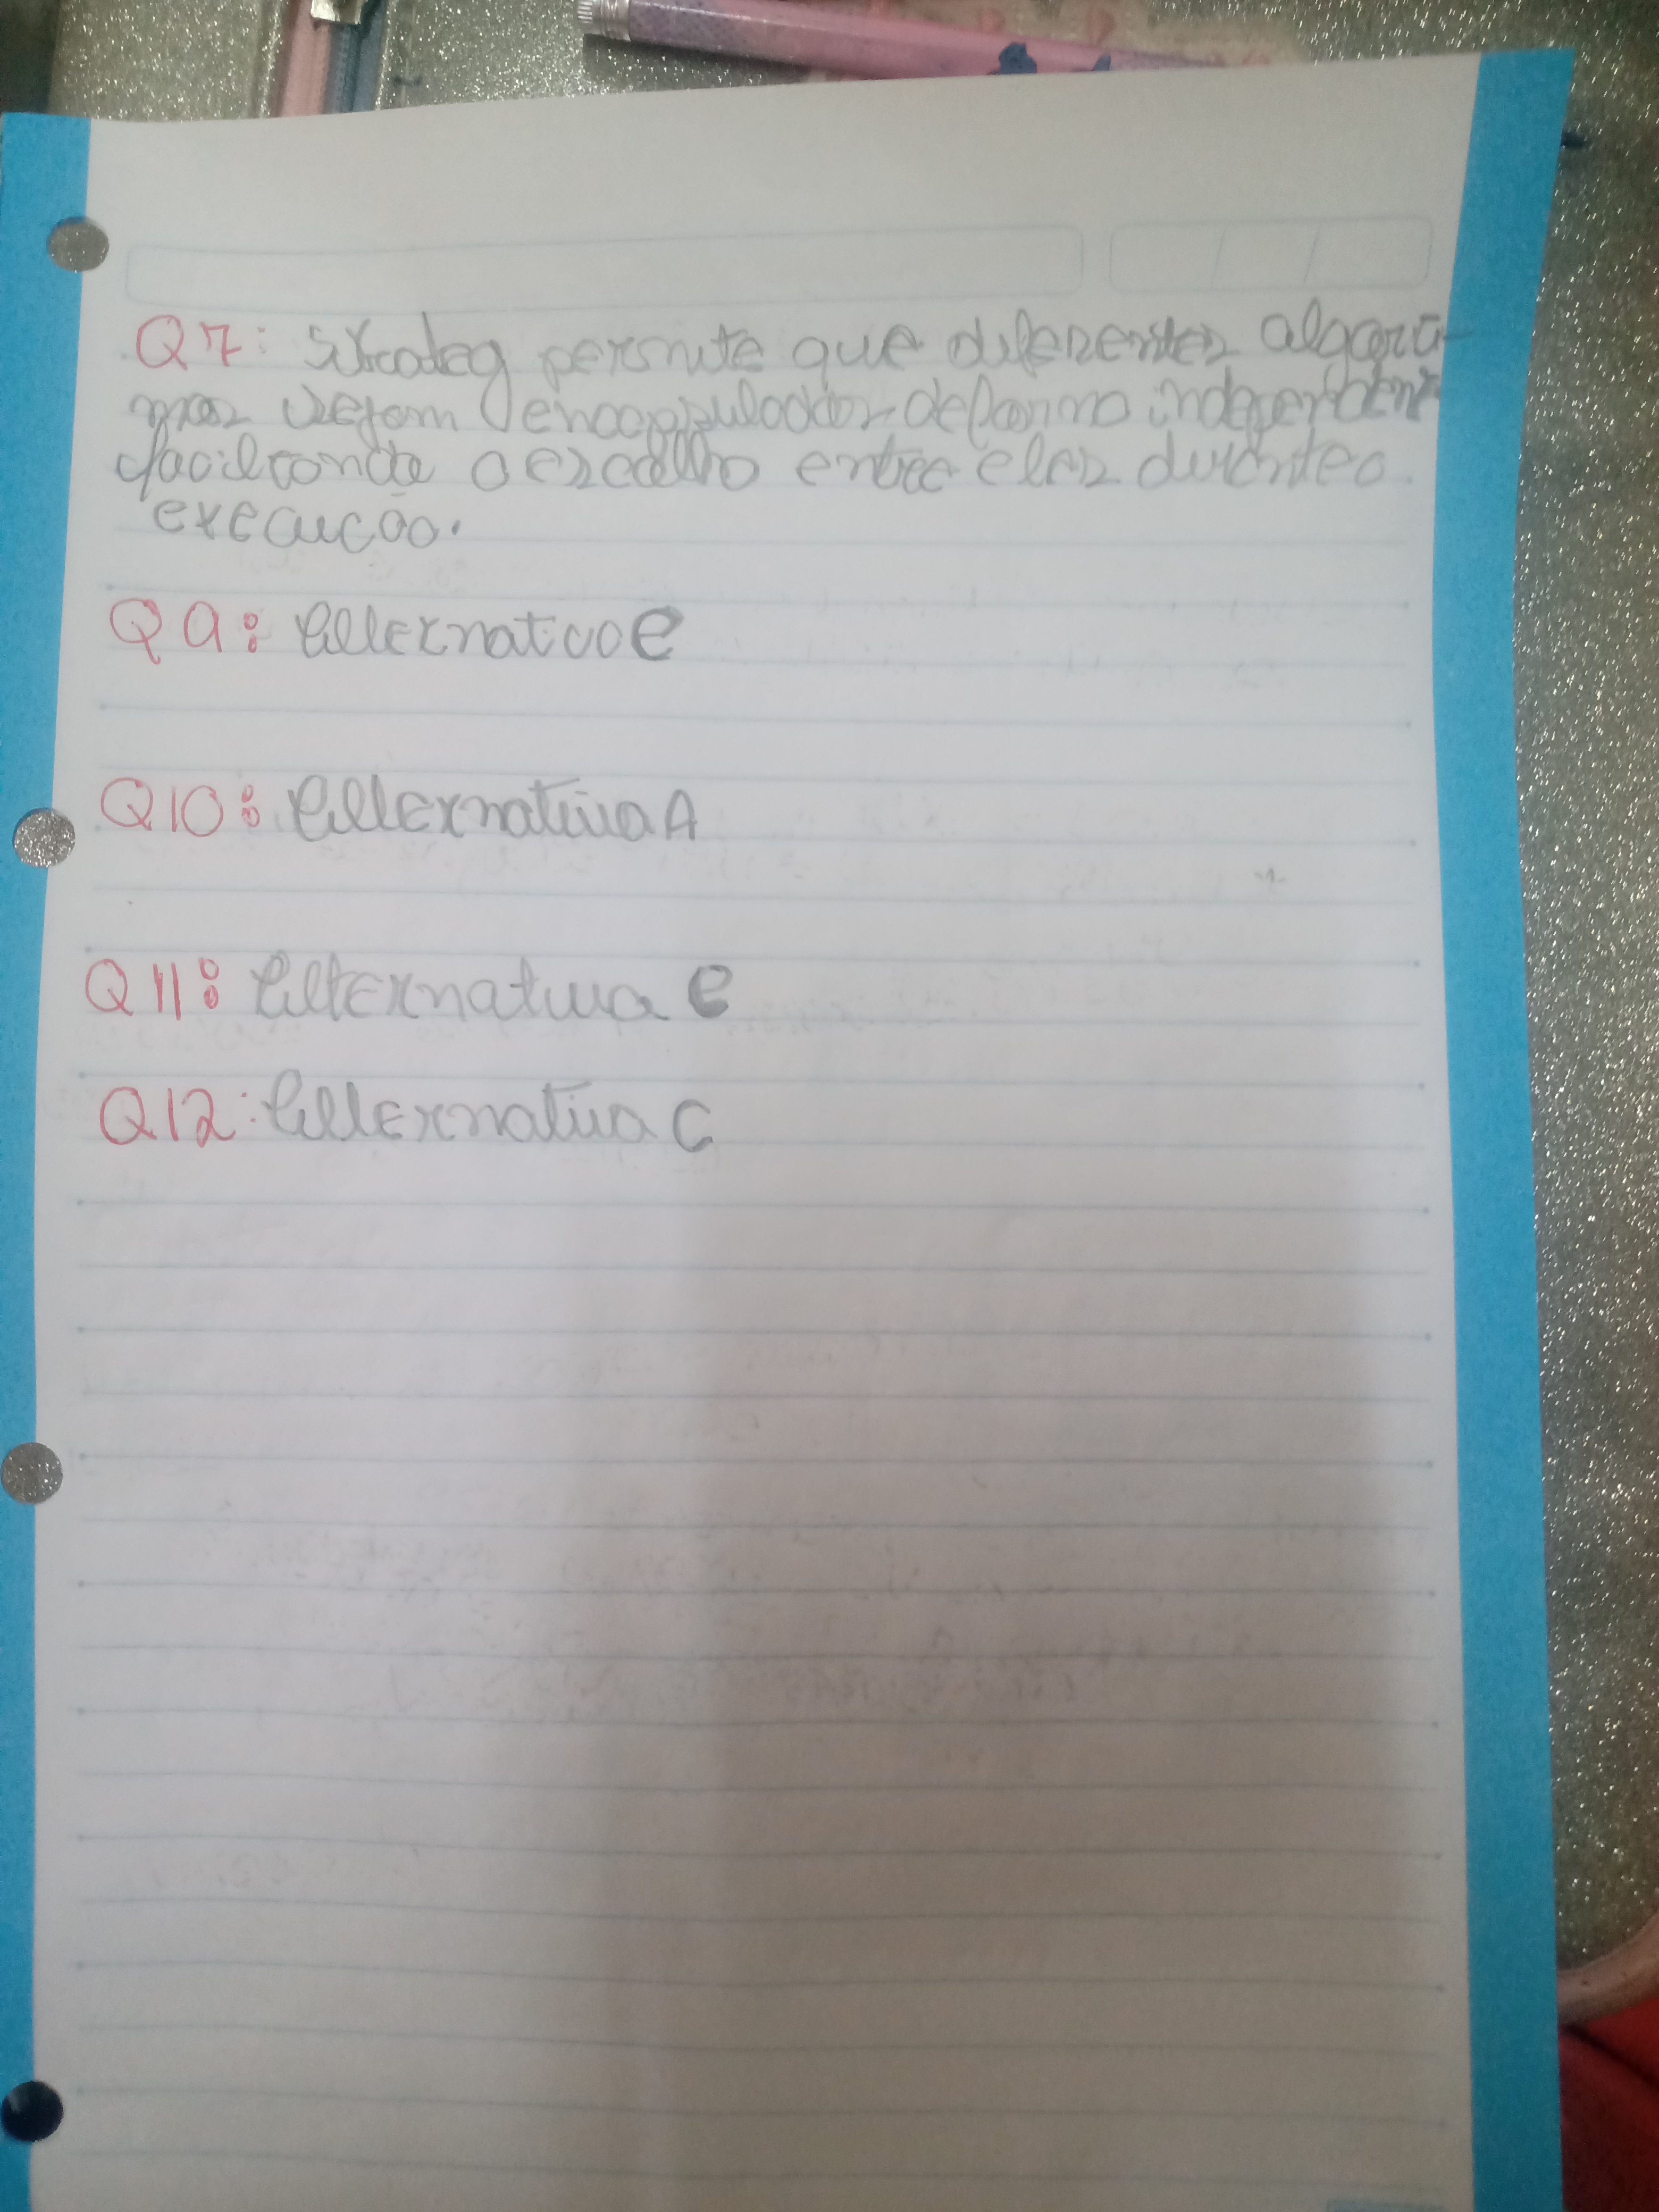 Q7: Strateg permite que diferentes algorit-
mos sejam encapsulados de forma independent
faciltando a escolho entre eles durante a
execução.
Q9: Alternativa e
Q10: Alternativa A
Q11: Alternativa e
Q12: Alternativa C